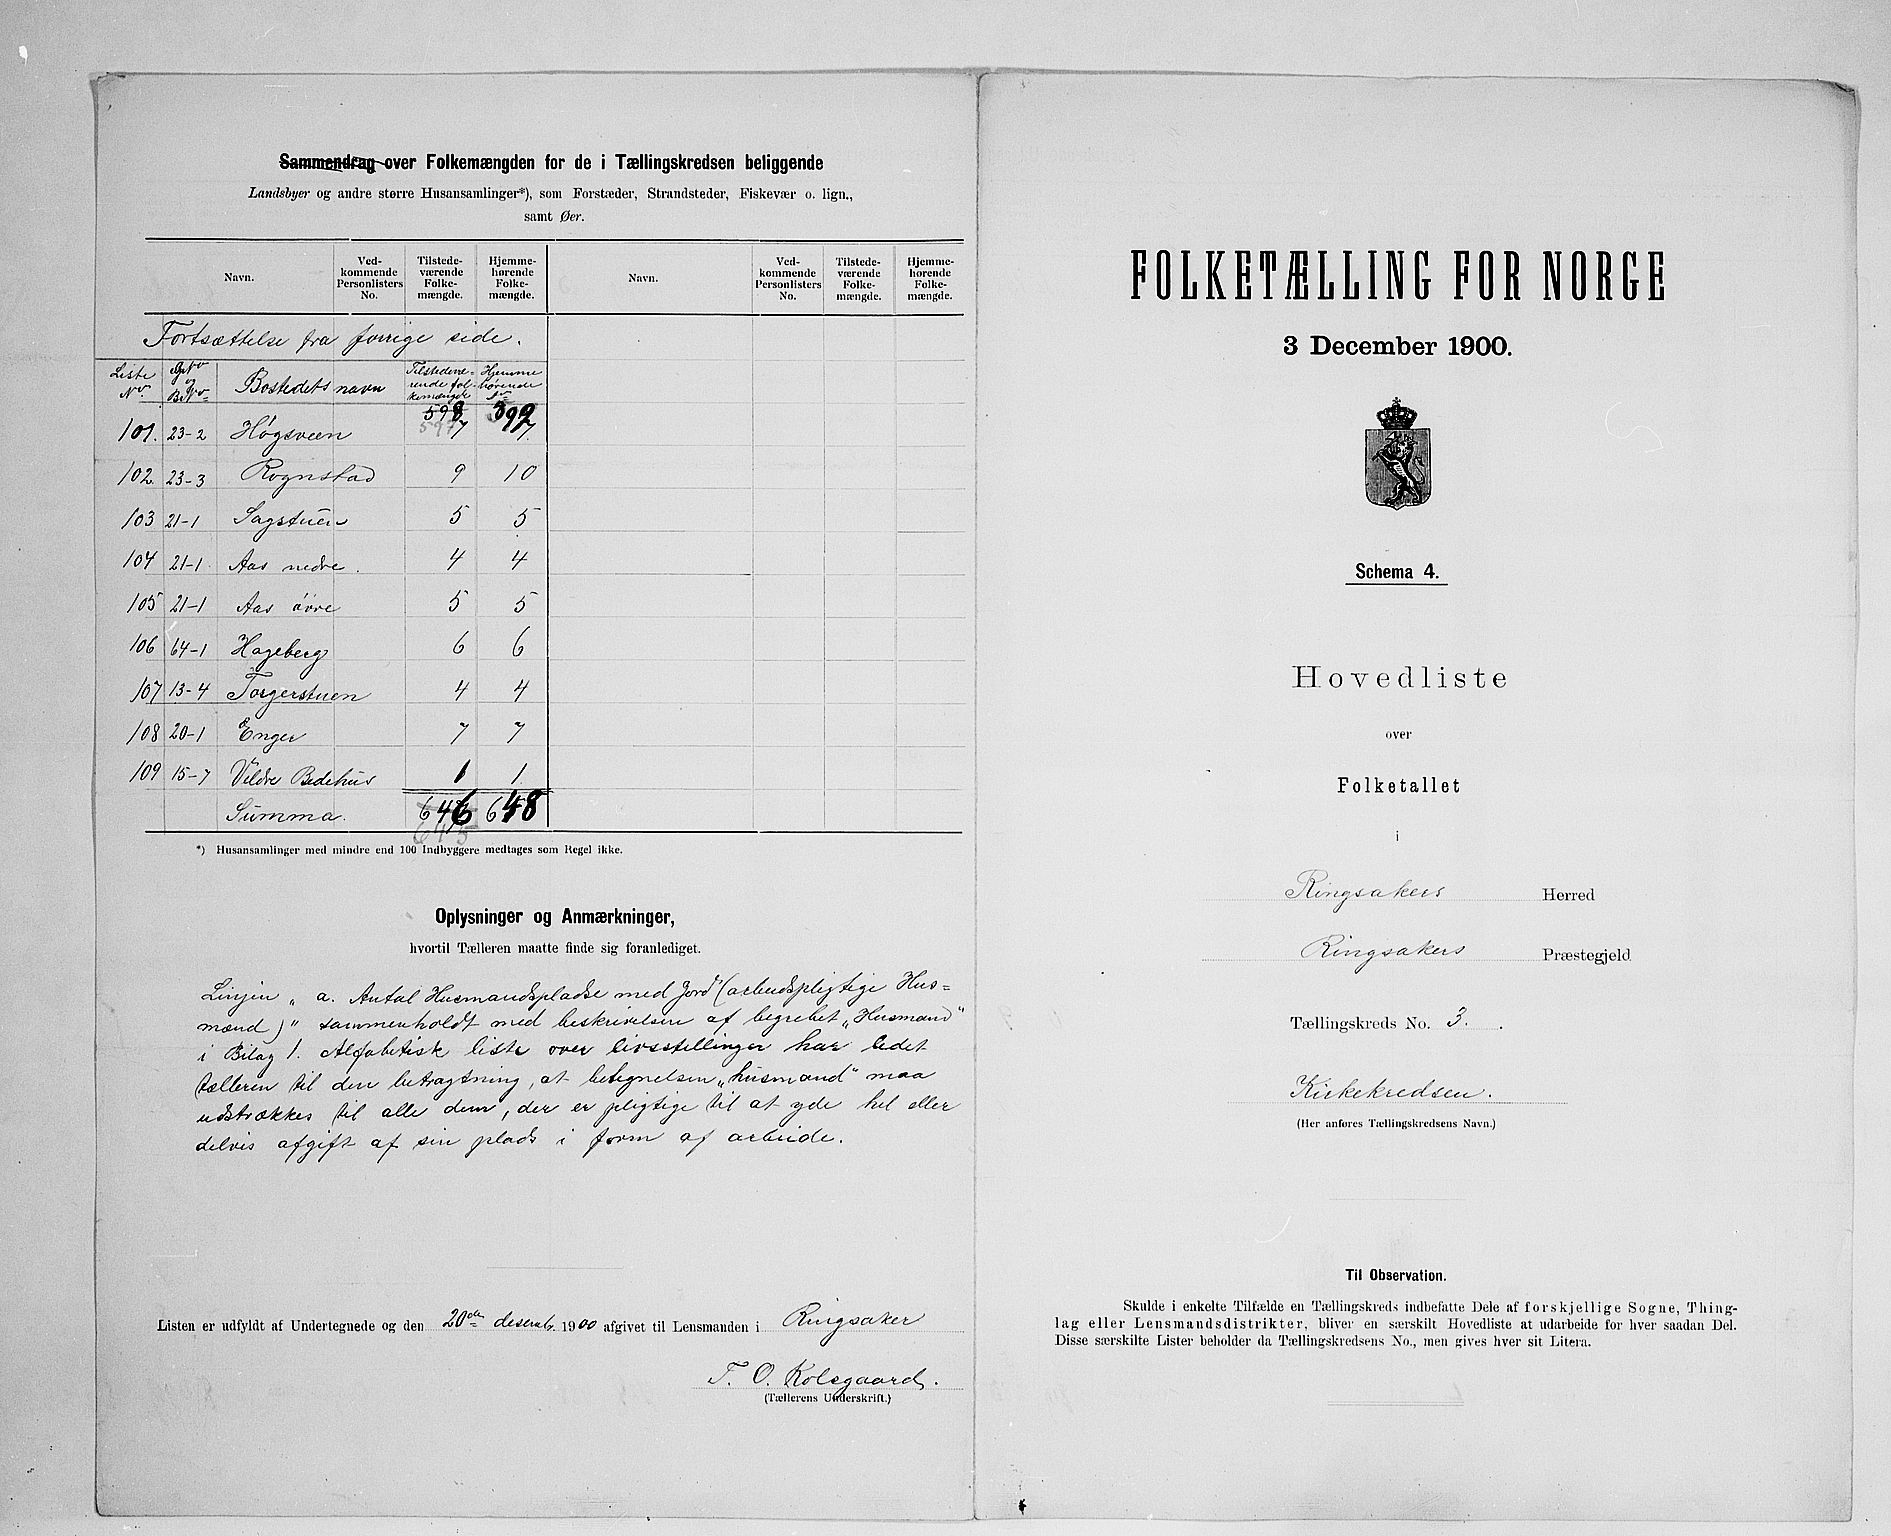 Sammendrag over Folkemængden for de i Tællingskredsen beliggende
Landsbyer og andre større Husansamlinger*), som Forstæder, Strandsteder, Fiskevær o. lign.,
samt Øer.
Navn. Ved-kommende Personlisters No. Tilstede-værende Folke-mængde. Hjemme-hørende Folke-mængde. Navn. Ved-kommende Personlisters No. Tilstede-værende Folke-mængde. Hjemme-hørende Folke-mængde.
Fortsættelse fra forrige side.
Liste No. GNo og BNo Bostedets navn Tilstedevæ-rende fol-kemængde Hjemme hørende do
598
101. 23-2 Høgsveen 597 7 7
102. 23-3 Rognstad 9 10
103 21-1 Sagstuen 5 5
104 21-1. Aas nedre. 4 4
105 21-1 Aas øvre 5 5
106 64-1 Hageberg 6 6
107 13-4 Torgerstuen 4 4
108 20-1 Enger 7 7
109 15-7 Vildre Bedehus 1 1.
Summa. 646 648
645
*) Husansamlinger med mindre end 100 Indbyggere medtages som Regel ikke.
Oplysninger og Anmærkninger,
hvortil Tælleren maatte finde sig foranlediget.
Linjen „a. Antal Husmandspladse med Jord (arbeidspligtige Hus=
mænd)" sammenholdt med beskrivelsen af begrebet „Husmand"
i Bilag 1. Alfabetisk liste over livsstillinger har ledet
tælleren til den betragtning, at betegnelsen „husmand" maa
udstrækkes til alle dem, der er pligtige til at yde hel eller
delvis afgift af sin plads i form af arbeide.
Listen er udfyldt af Undertegnede og den 20de desemb. 1900 afgivet til Lensmanden i Ringsaker
T. O. Kolsgaard.
(Tællerens Underskrift.)
FOLKETÆLLING FOR NORGE
3 December 1900.
Schema 4.
Hovedliste
over
Folketallet
i
Ringsakers Herred
Ringsakers Præstegjeld
Tællingskreds No. 3.
Kirkekredsen.
(Her anføres Tællingskredsens Navn.)
Til Observation.
Skulde i enkelte Tilfælde en Tællingskreds indbefatte Dele af forskjellige Sogne, Thing-
lag eller Lensmandsdistrikter, bliver en særskilt Hovedliste at udarbeide for hver saadan Del.
Disse særskilte Lister beholder da Tællingskredsens No., men gives hver sit Litera.